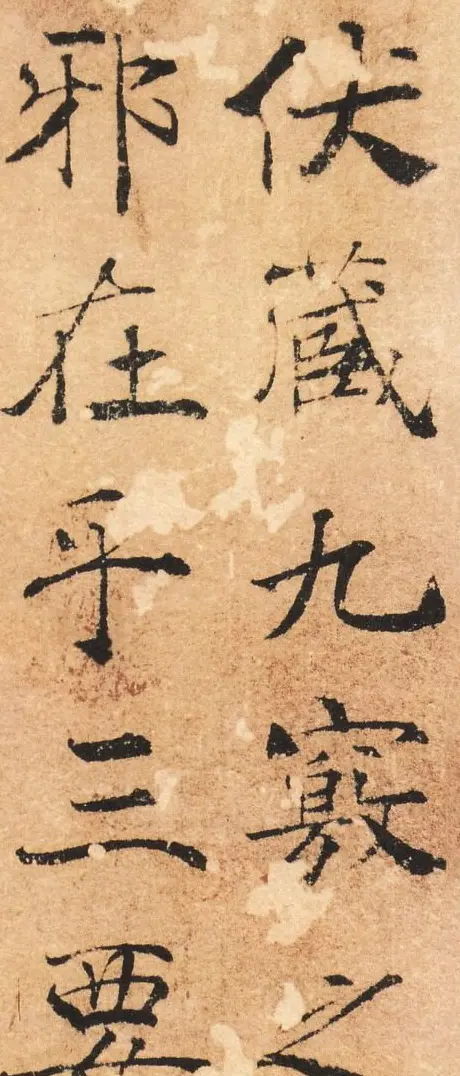 伏藏九竅之
邪在乎三要